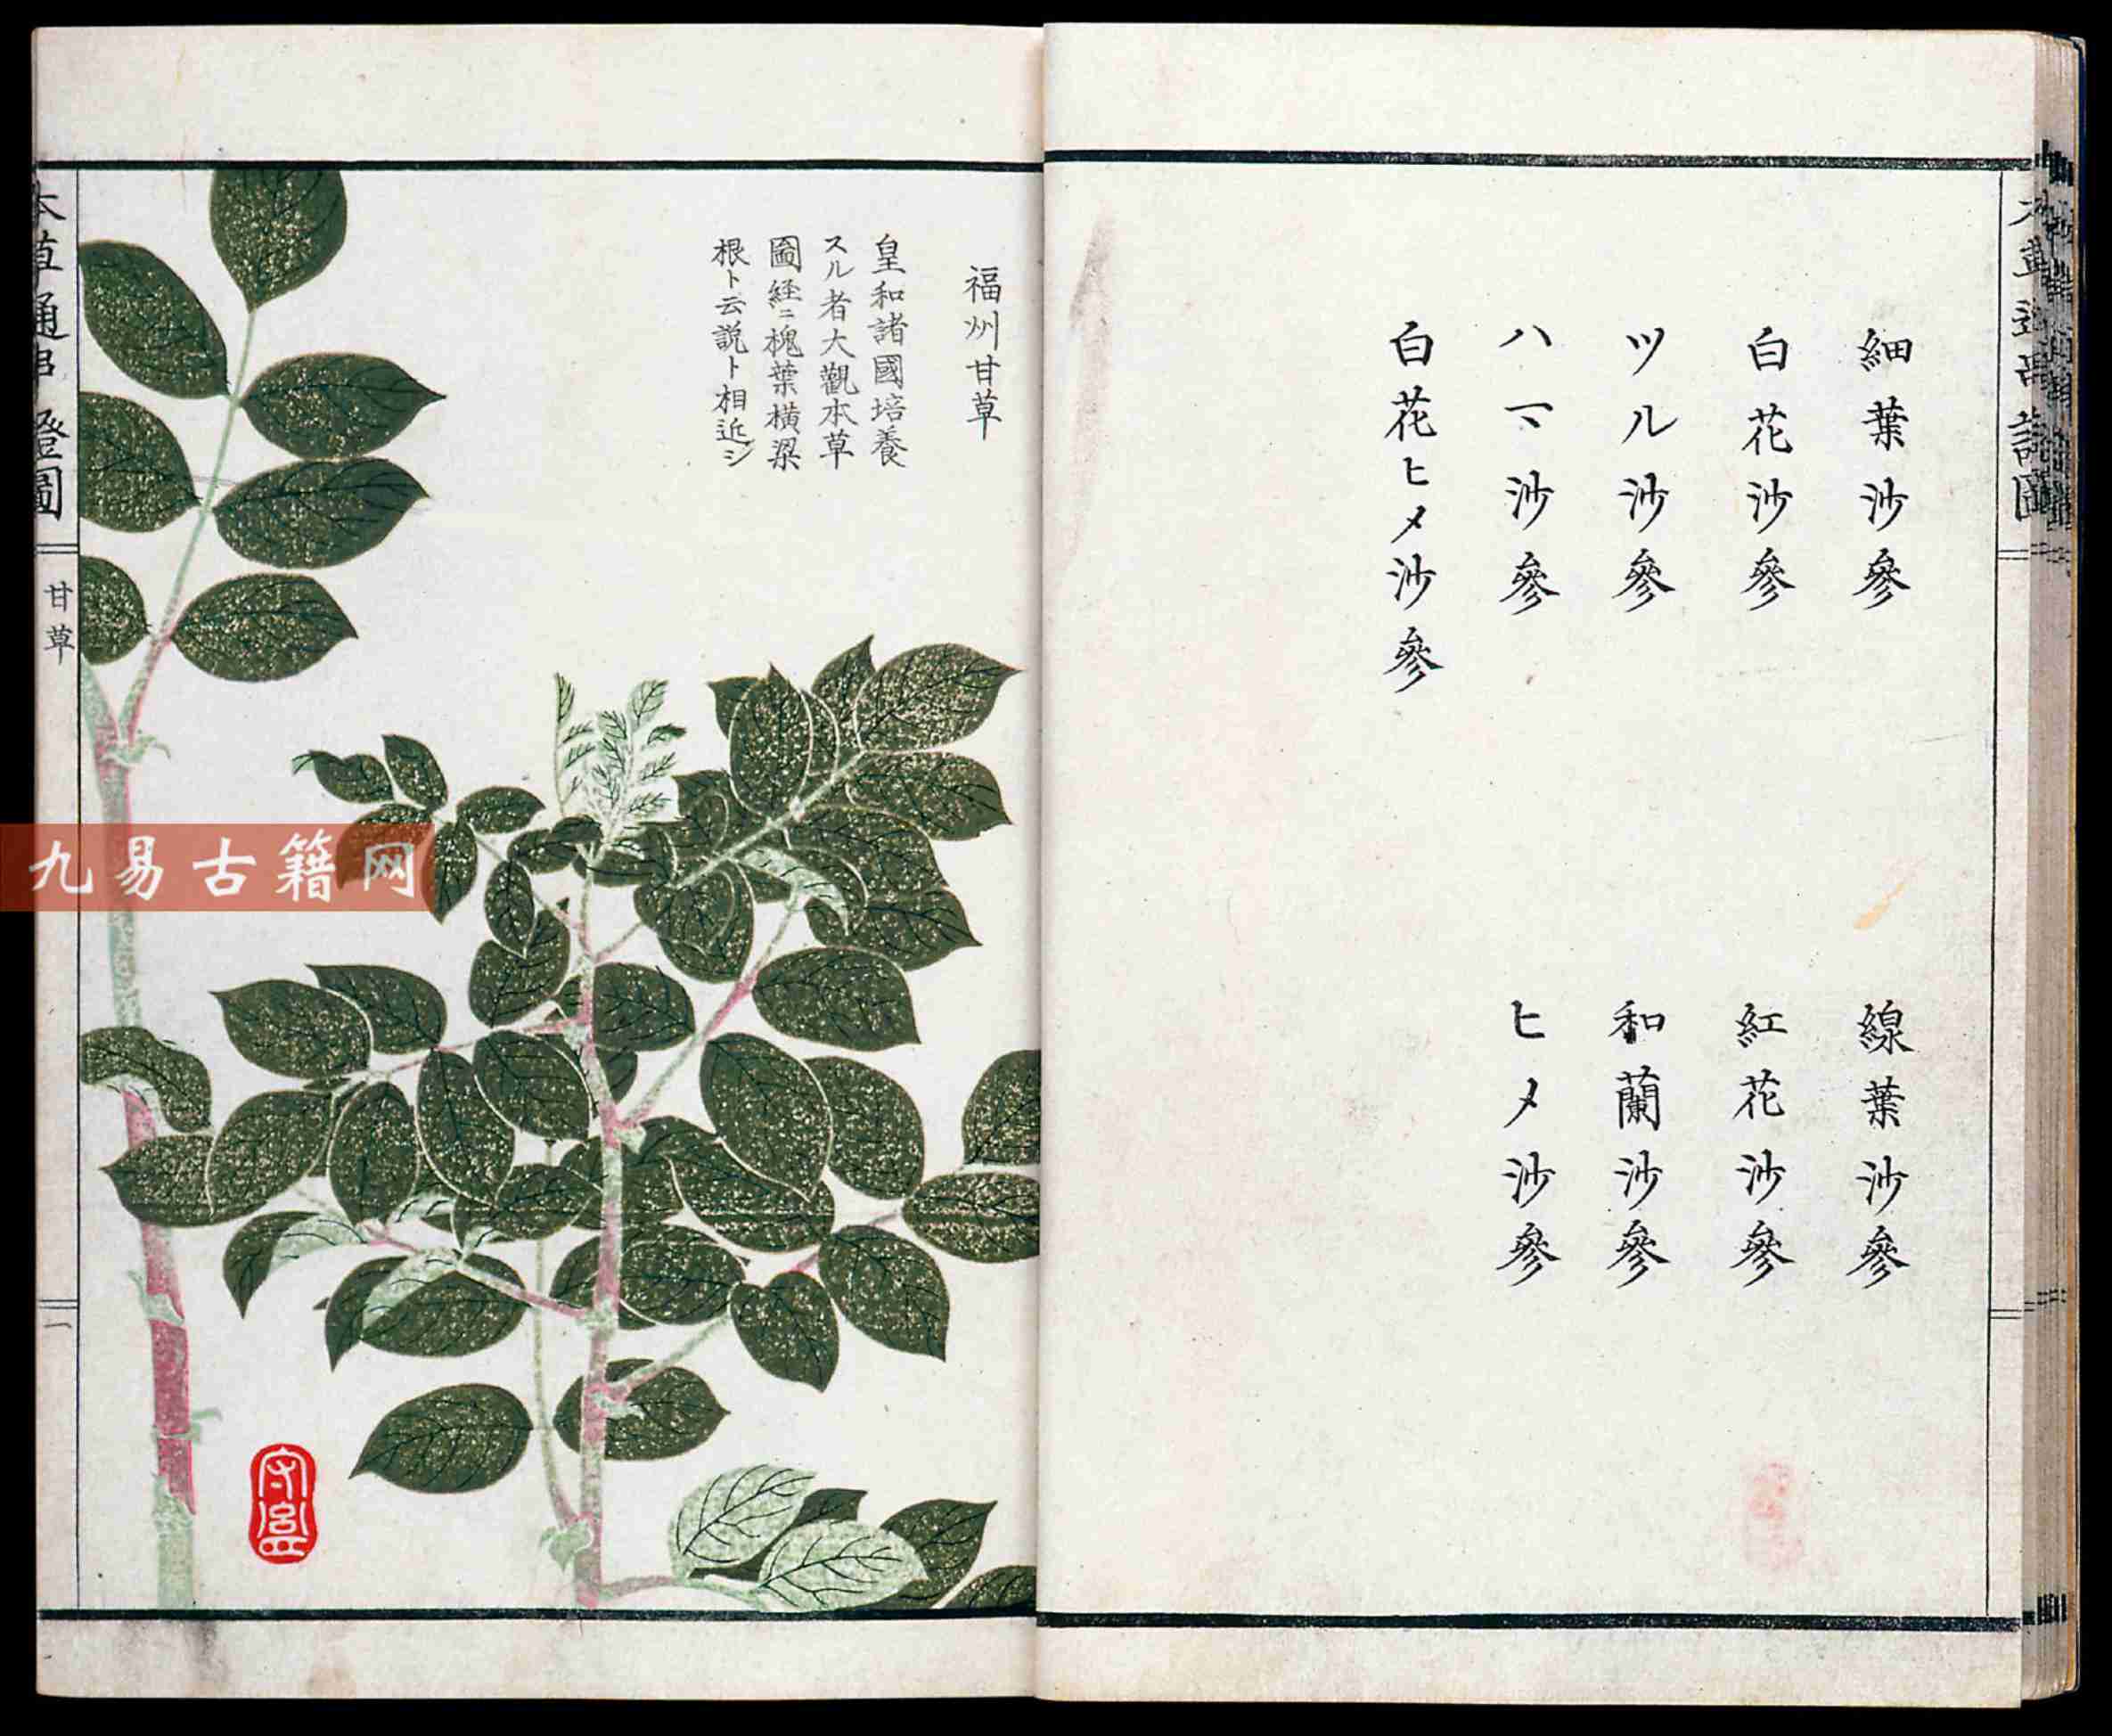 細葉沙參
線葉沙參
白花沙參
紅花沙參
ツル沙參
和蘭沙參
ハマ沙參
ヒメ沙參
白花ヒメ沙參
福州甘草
皇和諸國培養
スル者大觀本草
圖経ニ槐葉橫梁
根ト云説ト相近シ
本草通串證圖
甘草
一
九易古籍网